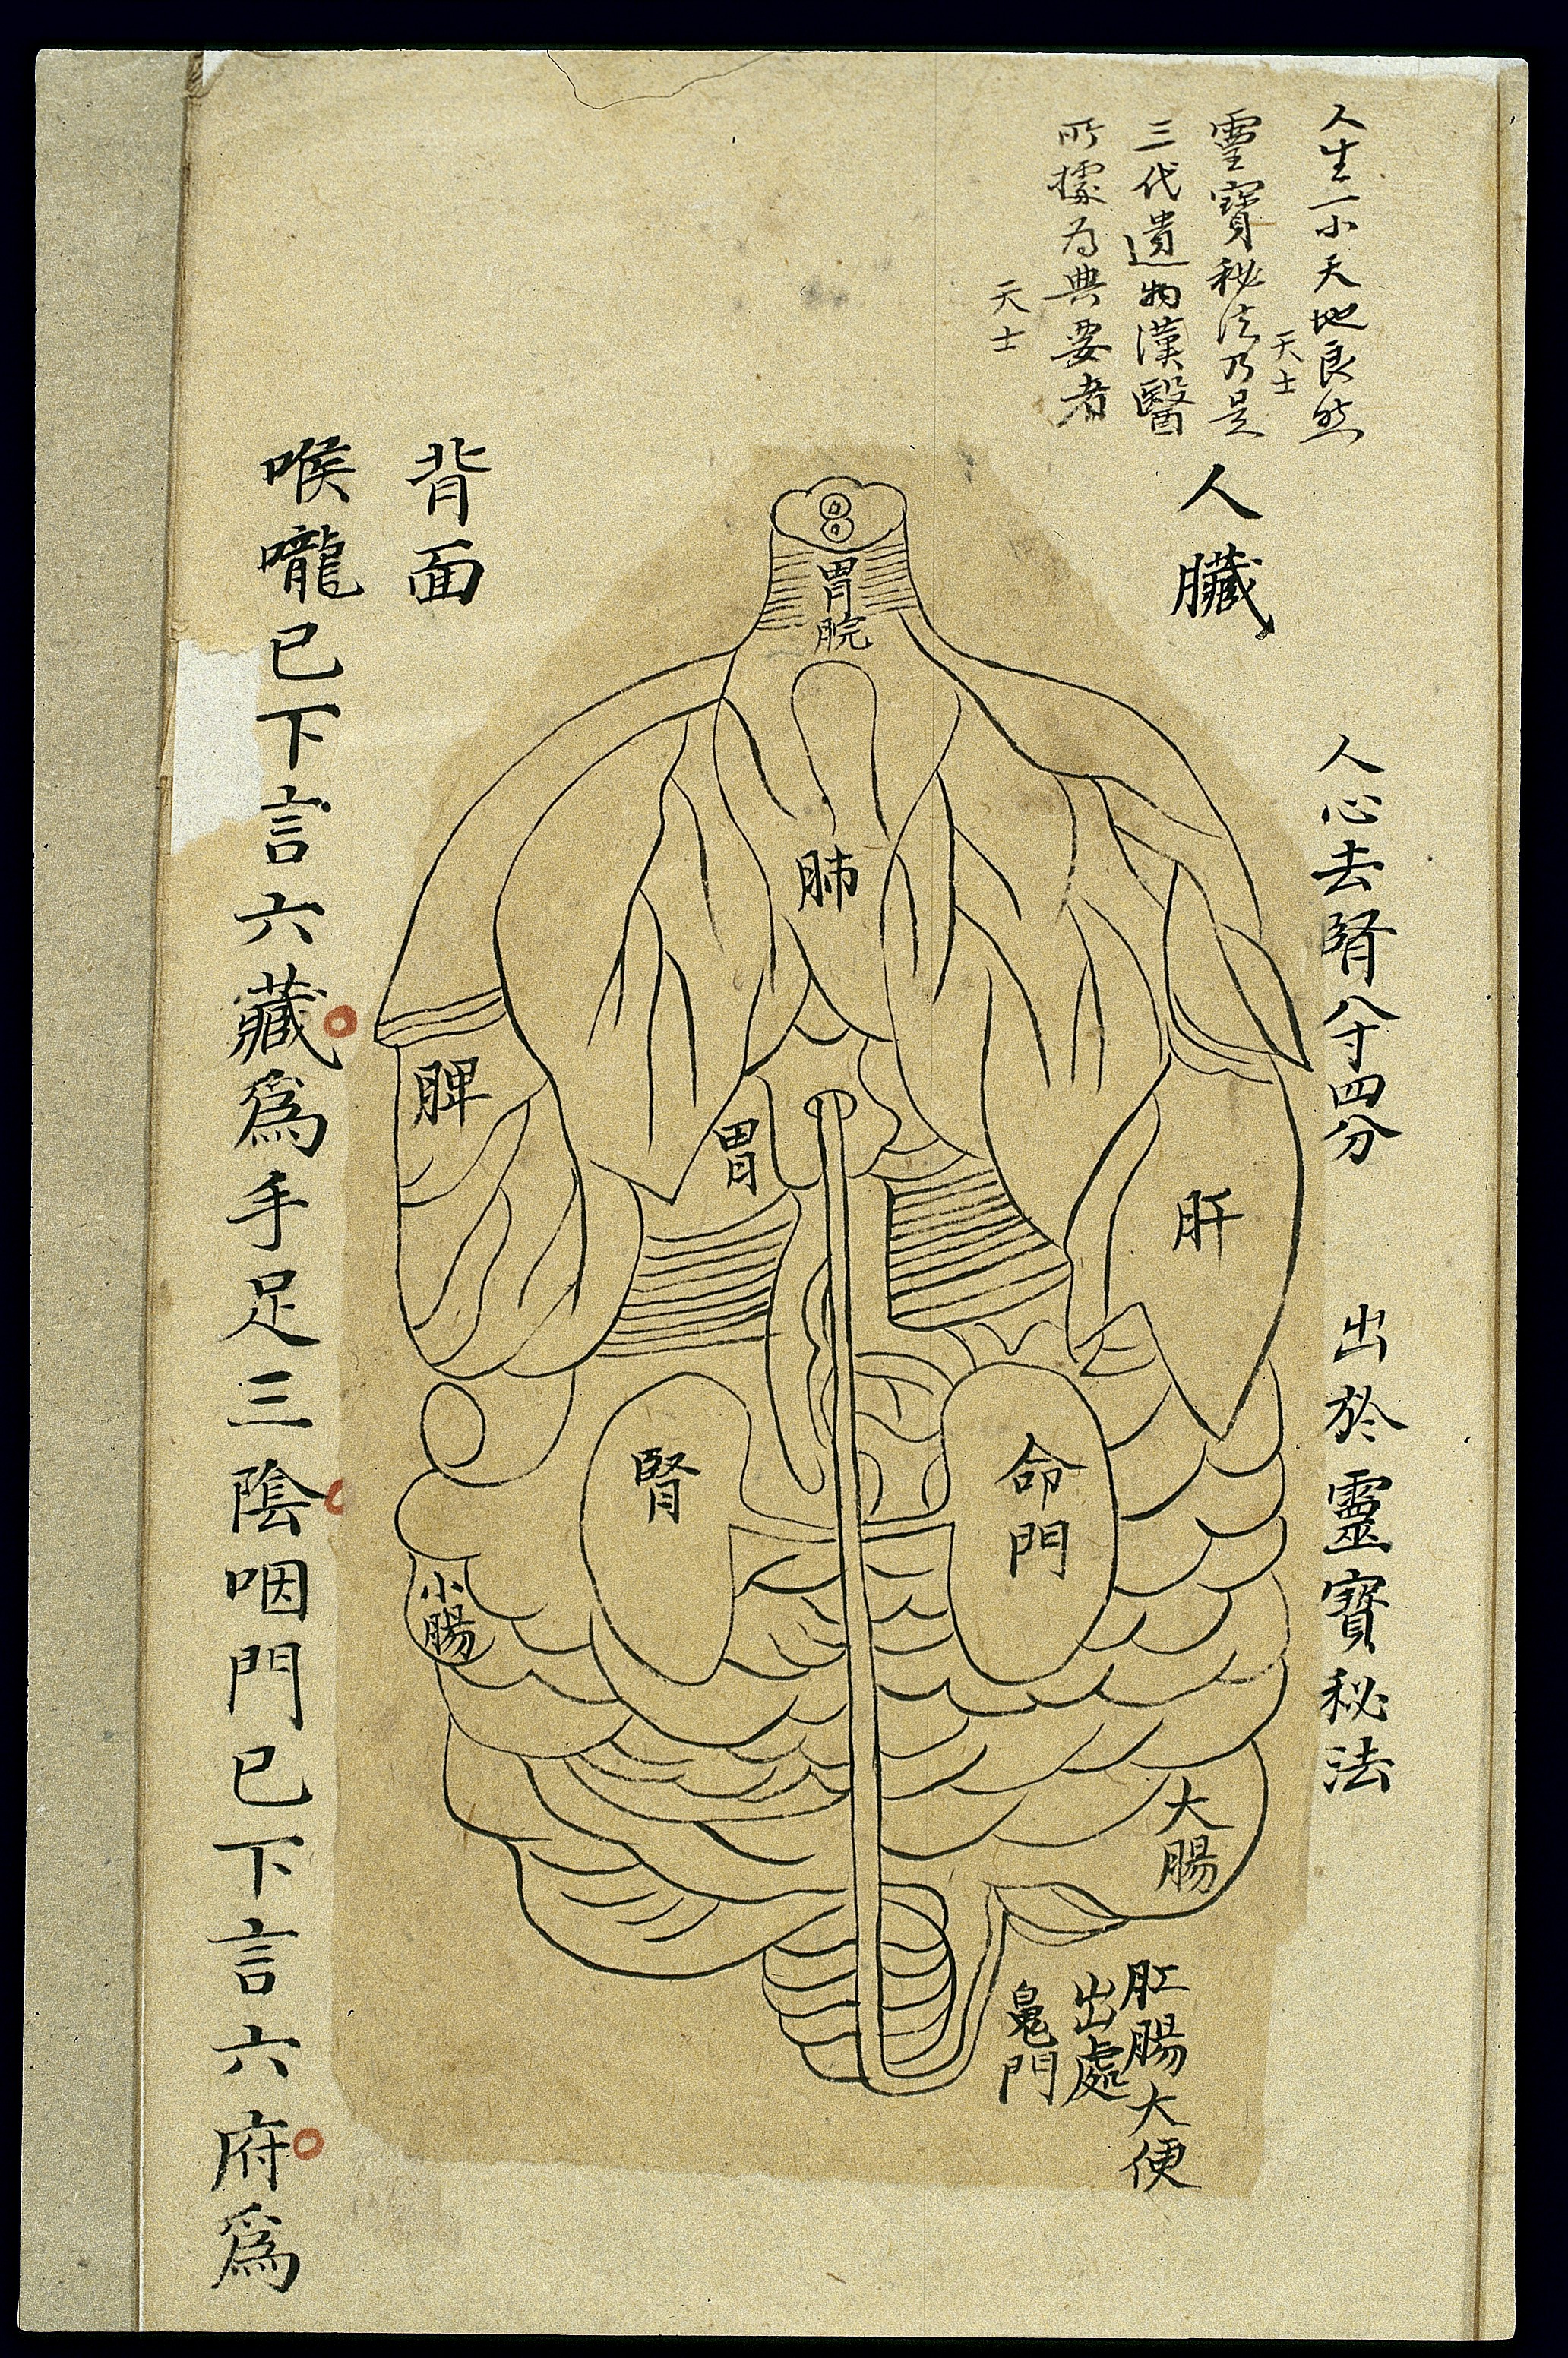 人生一小天地良然
天士
靈寶秘法乃是
三代遺物漢醫
所據為典要者
天士
人臟
人心去腎八寸四分
出於靈寶秘法
胃脘
肺
脾
胃
肝
腎
命門
小腸
大腸
肛腸大便
出處
鬼門
背面
喉嚨已下言六藏為手足三陰咽門已下言六府為